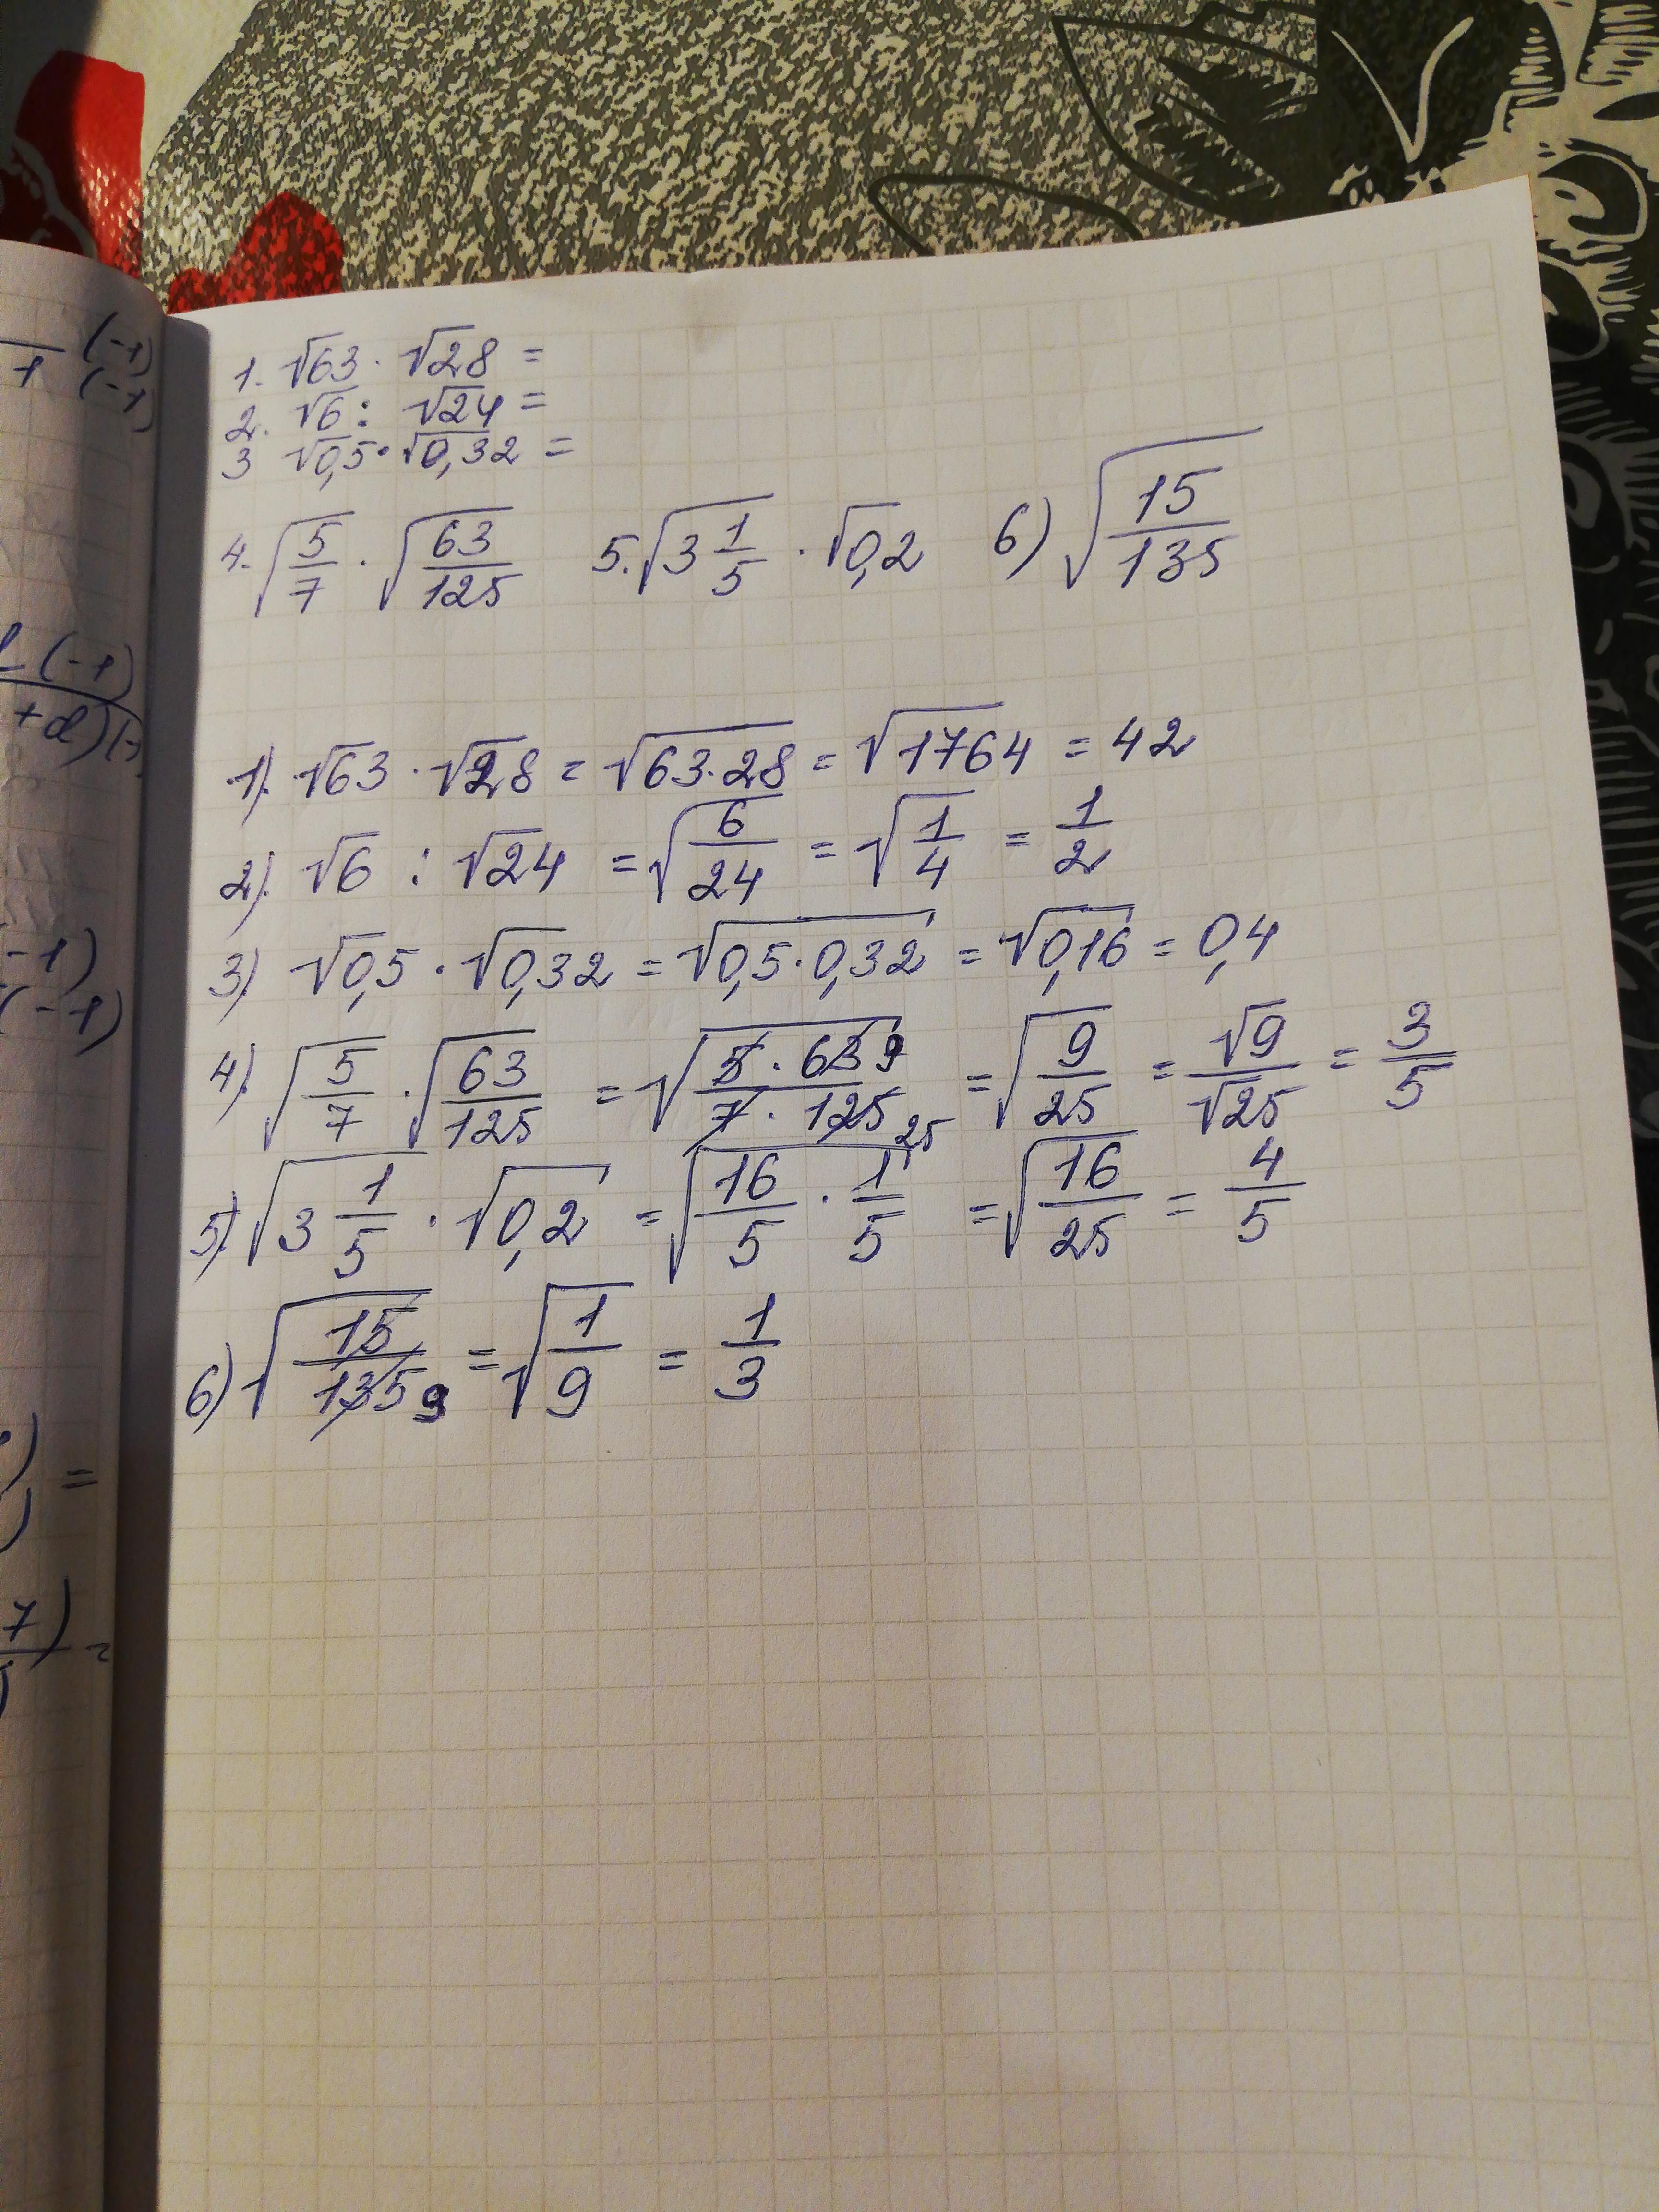 1. √63 · √28 =
2. √6 : √24 =
3 √0,5 · √0,32 =
4. √(5/7) · √(63/125) 5. √(3 1/5) · √0,2 6) √(15/135)
1). √63 · √28 = √(63·28) = √1764 = 42
2). √6 : √24 = √(6/24) = √(1/4) = 1/2
3). √0,5 · √0,32 = √(0,5·0,32) = √0,16 = 0,4
4). √(5/7) · √(63/125) = √((5 · 63 9)/(7 · 125 25)) = √(9/25) = √9/√25 = 3/5
5). √(3 1/5) · √0,2 = √(16/5 · 1/5) = √(16/25) = 4/5
6) √(15/135 9) = √(1/9) = 1/3
(-1)
1 (-1)
(-1)
+d)(-
-1)
(-1)
) =
)
7) =